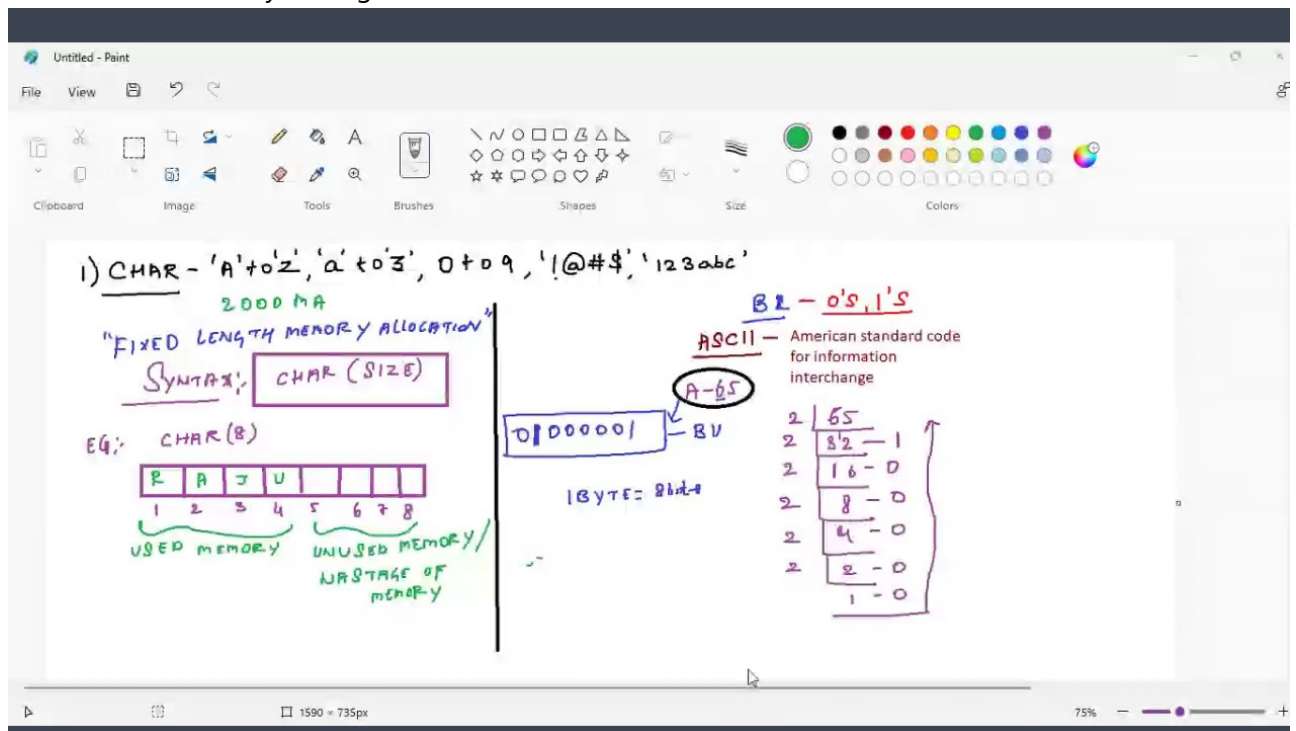 Untitled - Paint
File View
Clipboard Image Tools Brushes Shapes Size Colors
1) CHAR - 'A' to 'Z', 'a' to 'z', 0 to 9, '!@#$', '123abc'
2000 MA
"FIXED LENGTH MEMORY ALLOCATION"
SYNTAX:- CHAR (SIZE)
EG:- CHAR (8)
R A J U
1 2 3 4 5 6 7 8
USED MEMORY
UNUSED MEMORY/
WASTAGE OF
MEMORY
- 0'S, 1'S
ASCII - American standard code
for information
interchange
A-65
01000001 - BV
1BYTE = 8bits
2 65
2 32 - 1
2 16 - 0
2 8 - 0
2 4 - 0
2 2 - 0
1 - 0
1590 × 735px
75%